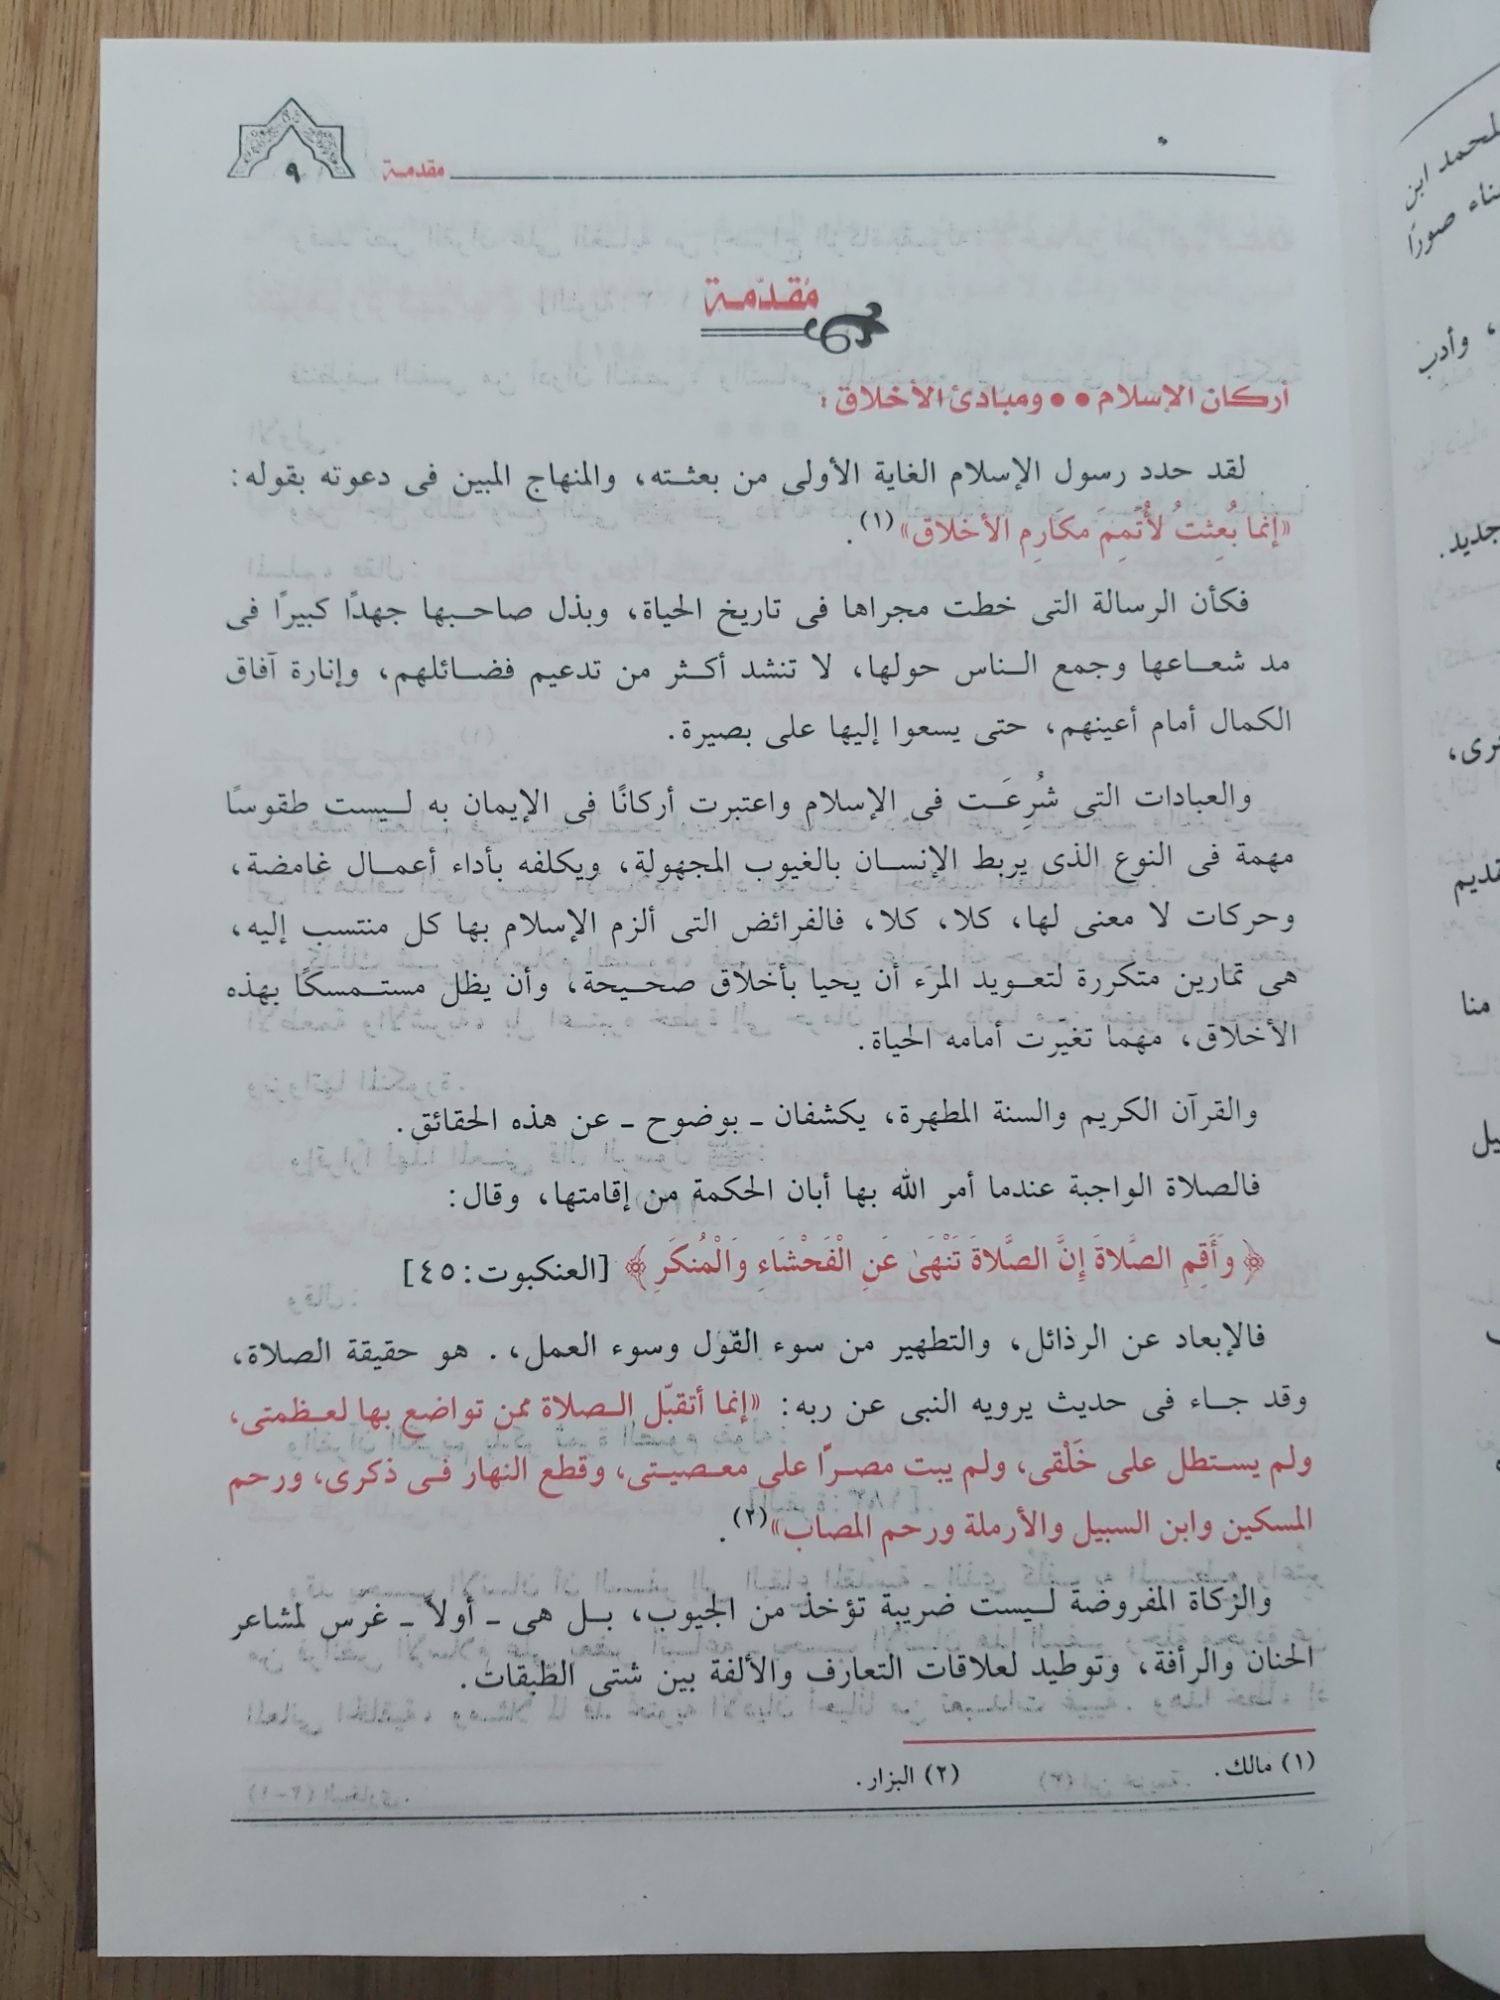 مقدمة
٩
مُقدّمة
أركان الإسلام •• ومبادئ الأخلاق :
لقد حدد رسول الإسلام الغاية الأولى من بعثته، والمنهاج المبين فى دعوته بقوله:
«إنما بُعِثتُ لأُتَمِمَ مكَارِمِ الأخلاق»(١).
فكأن الرسالة التى خطت مجراها فى تاريخ الحياة، وبذل صاحبها جهدًا كبيرًا فى
مد شعاعها وجمع الناس حولها، لا تنشد أكثر من تدعيم فضائلهم، وإنارة آفاق
الكمال أمام أعينهم، حتى يسعوا إليها على بصيرة.
والعبادات التى شُرِعَت فى الإسلام واعتبرت أركانًا فى الإيمان به ليست طقوسًا
مهمة فى النوع الذى يربط الإنسان بالغيوب المجهولة، ويكلفه بأداء أعمال غامضة،
وحركات لا معنى لها، كلا، كلا، فالفرائض التى ألزم الإسلام بها كل منتسب إليه،
هى تمارين متكررة لتعويد المرَء أن يحيا بأخلاق صحيحة، وأن يظل مستمسكًا بهذه
الأخلاق، مهما تغيّرت أمامه الحياة.
والقرآن الكريم والسنة المطهرة، يكشفان ـ بوضوح ـ عن هذه الحقائق.
فالصلاة الواجبة عندما أمر الله بها أبان الحكمة من إقامتها، وقال:
﴿ وَأَقِمِ الصَّلاةَ إِنَّ الصَّلاةَ تَنْهَىٰ عَنِ الْفَحْشَاءِ وَالْمُنكَرِ ﴾ [العنكبوت: ٤٥]
فالإبعاد عن الرذائل، والتطهير من سوء القّول وسوء العمل،. هو حقيقة الصلاة،
وقد جاء فى حديث يرويه النبى عن ربه: «إنما أتقبّل الصلاة ممن تواضع بها لعظمتى،
ولم يستطل على خَلْقى، ولم يبت مصرًا على معصيتى، وقطع النهار فى ذكرى، ورحم
المسكين وابن السبيل والأرملة ورحم المصاب»(٢).
والزكاة المفروضة ليست ضريبة تؤخذ من الجيوب، بل هى ـ أولاً ـ غرس لمشاعر
الحنان والرأفة، وتوطيد لعلاقات التعارف والألفة بين شتى الطبقات.
(١) مالك. (٢) البزار.
لمحمد ابن
صورًا
، وأدب
جديد.
منا